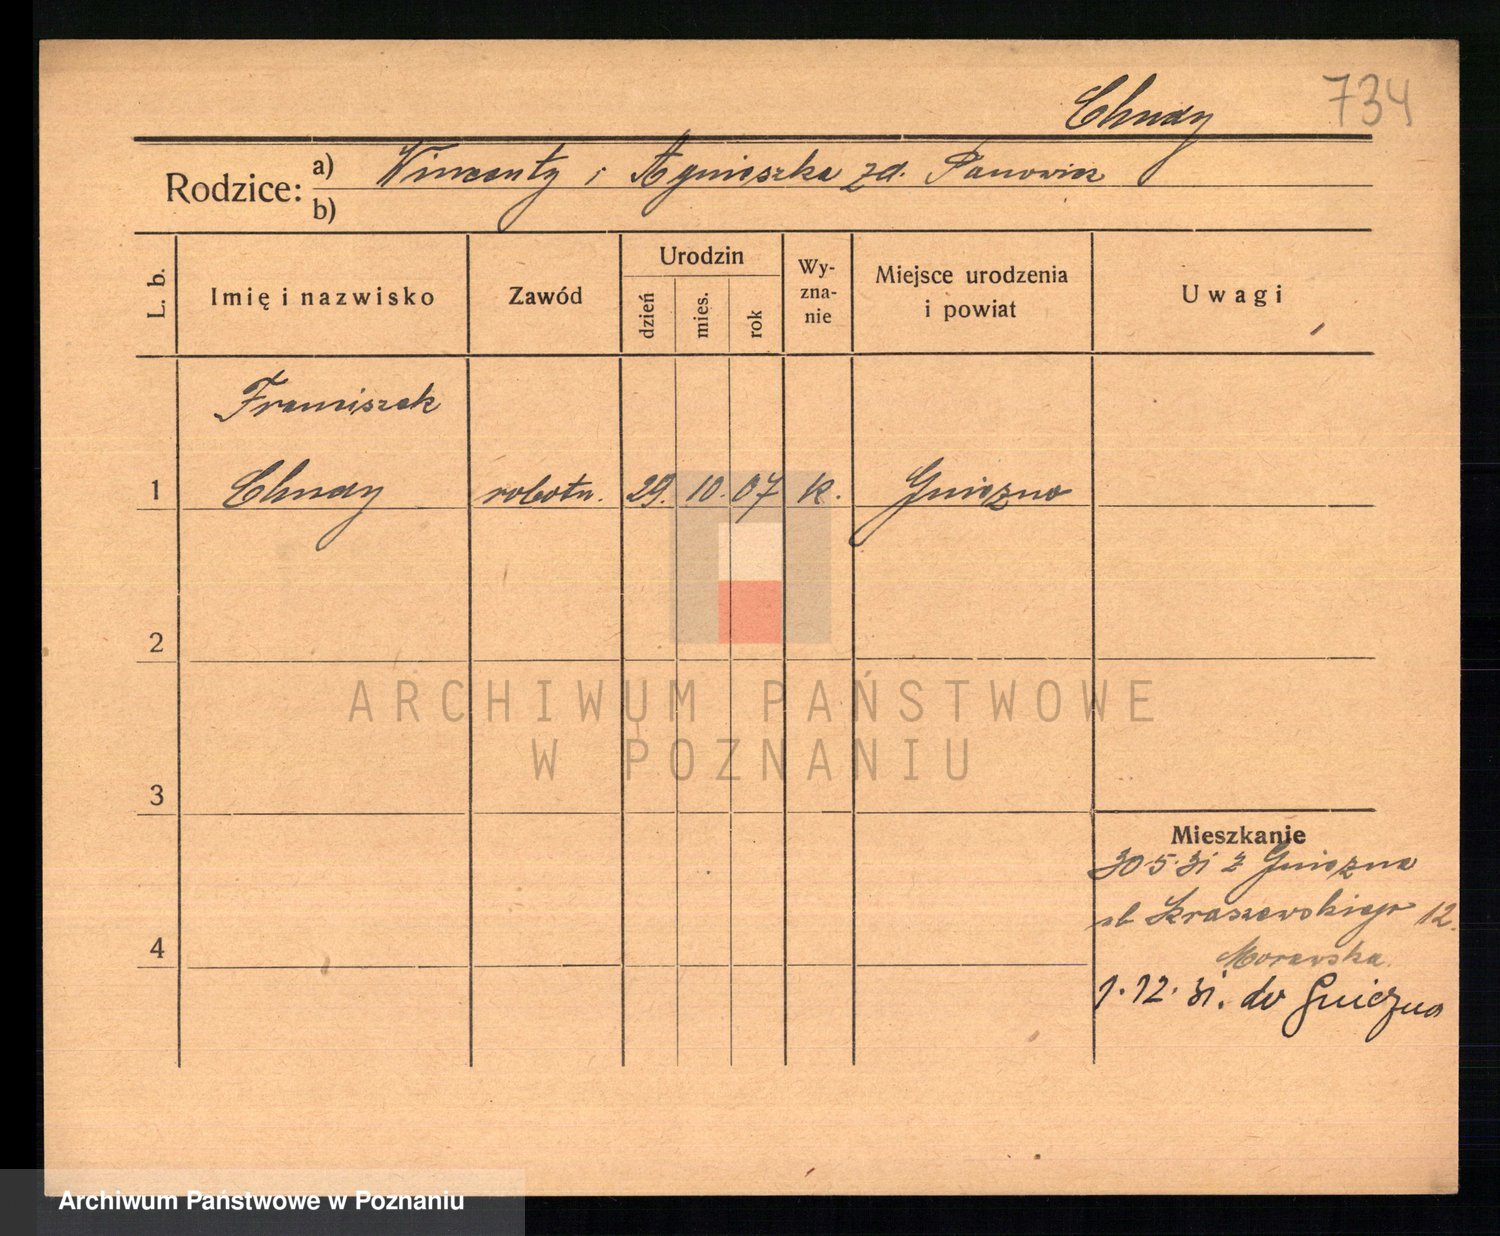 734
Chudy
Rodzice: a) Wincenty i Agnieszka zd. Panowicz
b)
L. b.
Imię i nazwisko
Zawód
Urodzin
dzień
mies.
rok
Wy-
zna-
nie
Miejsce urodzenia
i powiat
Uwagi
Franciszek
1 Chudy robotn. 29. 10. 07 k. Gniezno
2
3
4
Mieszkanie
30.5.31 z Gniezna
Kraszewskiego 12.
Morawska
1.12.31. do Gniezna
ARCHIWUM PAŃSTWOWE
W POZNANIU
Archiwum Państwowe w Poznaniu